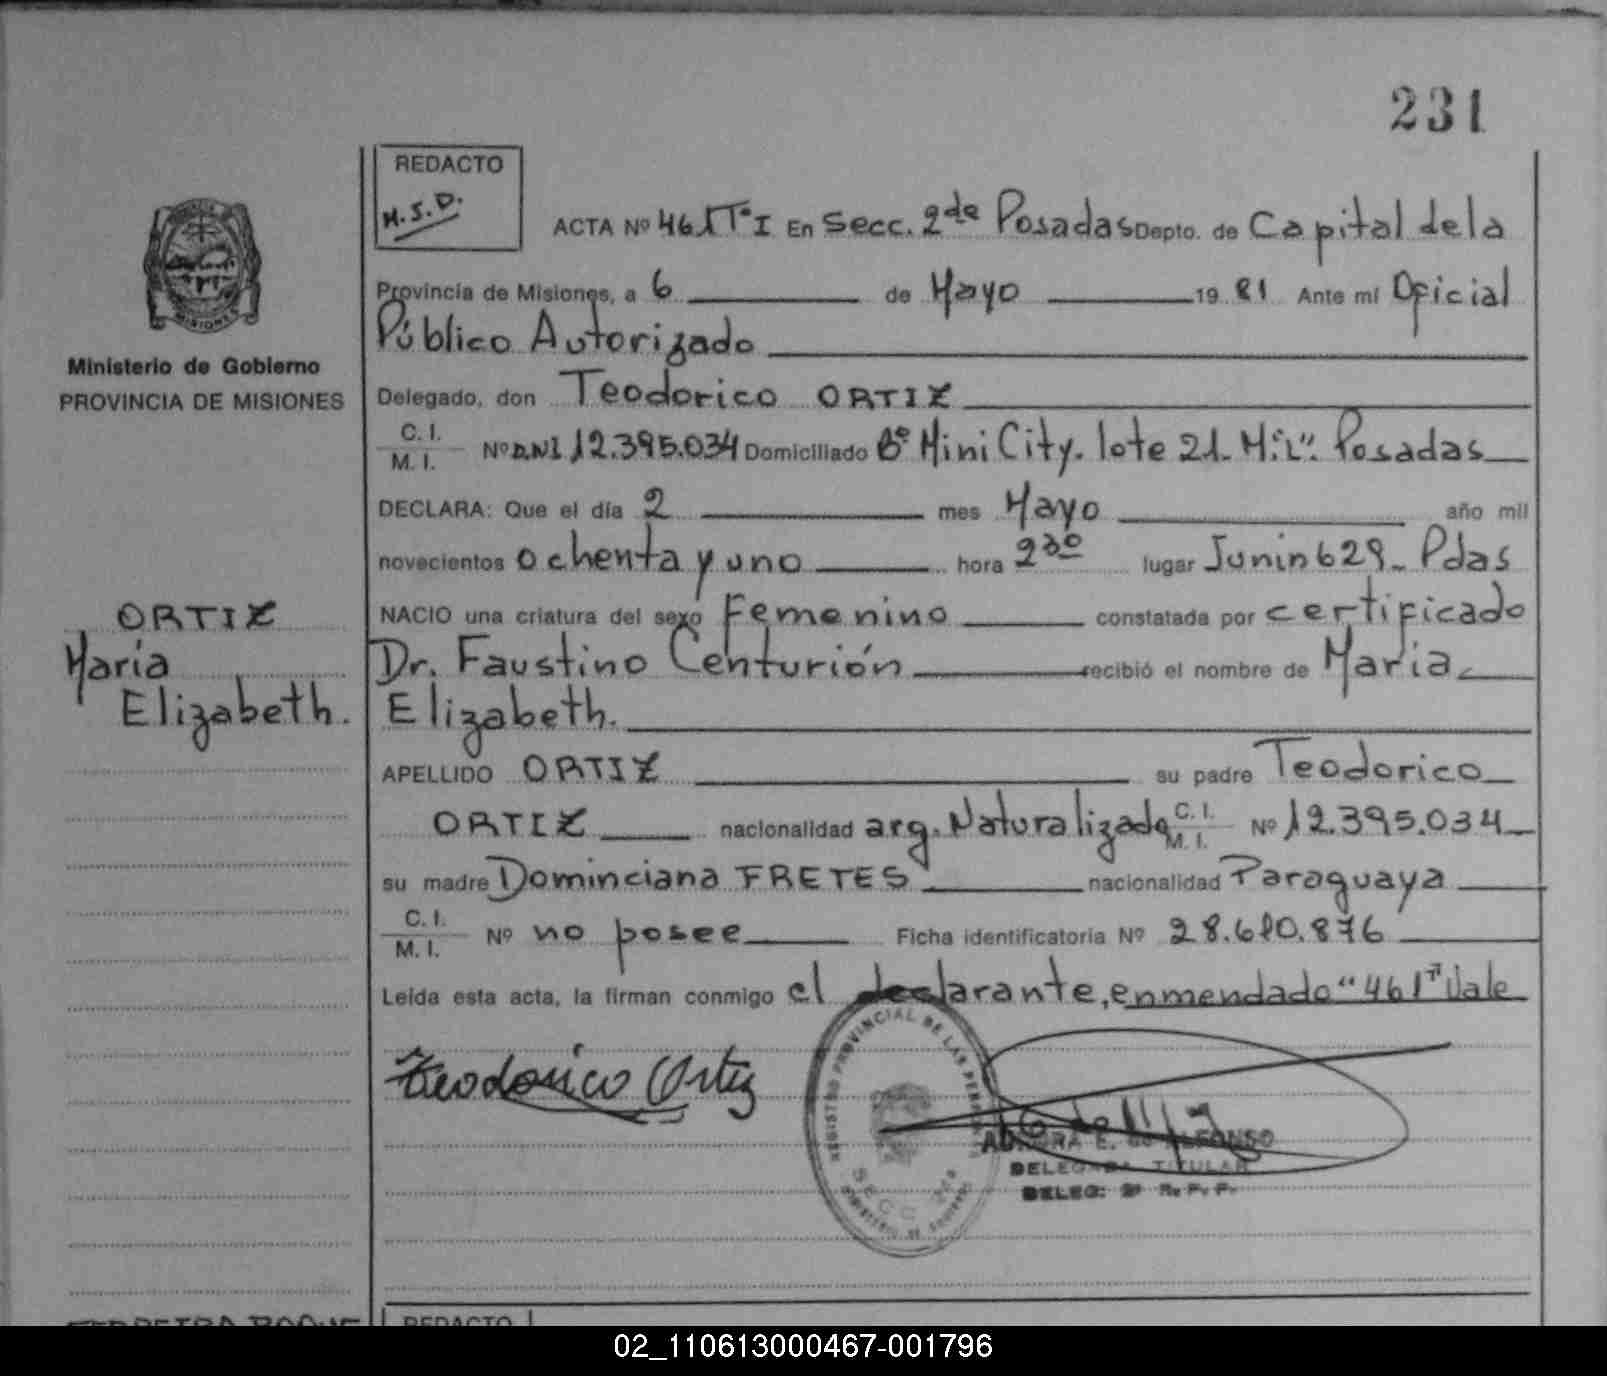 231
REDACTO
H.S.D.
ACTA Nº 461 Tº I En Secc. 2da Posadas Depto. de Capital de la
Provincia de Misiones, a 6 de Mayo 19 81 Ante mí Oficial
Público Autorizado
Ministerio de Gobierno
PROVINCIA DE MISIONES
Delegado, don Teodorico ORTIZ
C. I.
M. I. Nº D.N.I 12.395.034 Domiciliado Bº Mini City. lote 21. M:"L". Posadas
DECLARA: Que el día 2 mes Mayo año mil
novecientos ochenta y uno hora 2 30 lugar Junin 629 Pdas
NACIO una criatura del sexo Femenino constatada por certificado
Dr. Faustino Centurión recibió el nombre de María
Elizabeth.
ORTIZ
María
Elizabeth.
APELLIDO ORTIZ su padre Teodorico
ORTIZ nacionalidad arg. Naturalizado C. I. M. I. Nº 12.395.034
su madre Dominciana FRETES nacionalidad Paraguaya
C. I.
M. I. Nº no posee Ficha identificatoria Nº 28.610.876
Leída esta acta, la firman conmigo el declarante, enmendado "461" Vale
Teodorico Ortiz
REGISTRO PROVINCIAL DE LAS PERSONAS
SECC. 2da
AURORA E. de ALFONSO
DELEGADA TITULAR
DELEG: 2ª R. P. P.
REDACTO
02_110613000467-001796